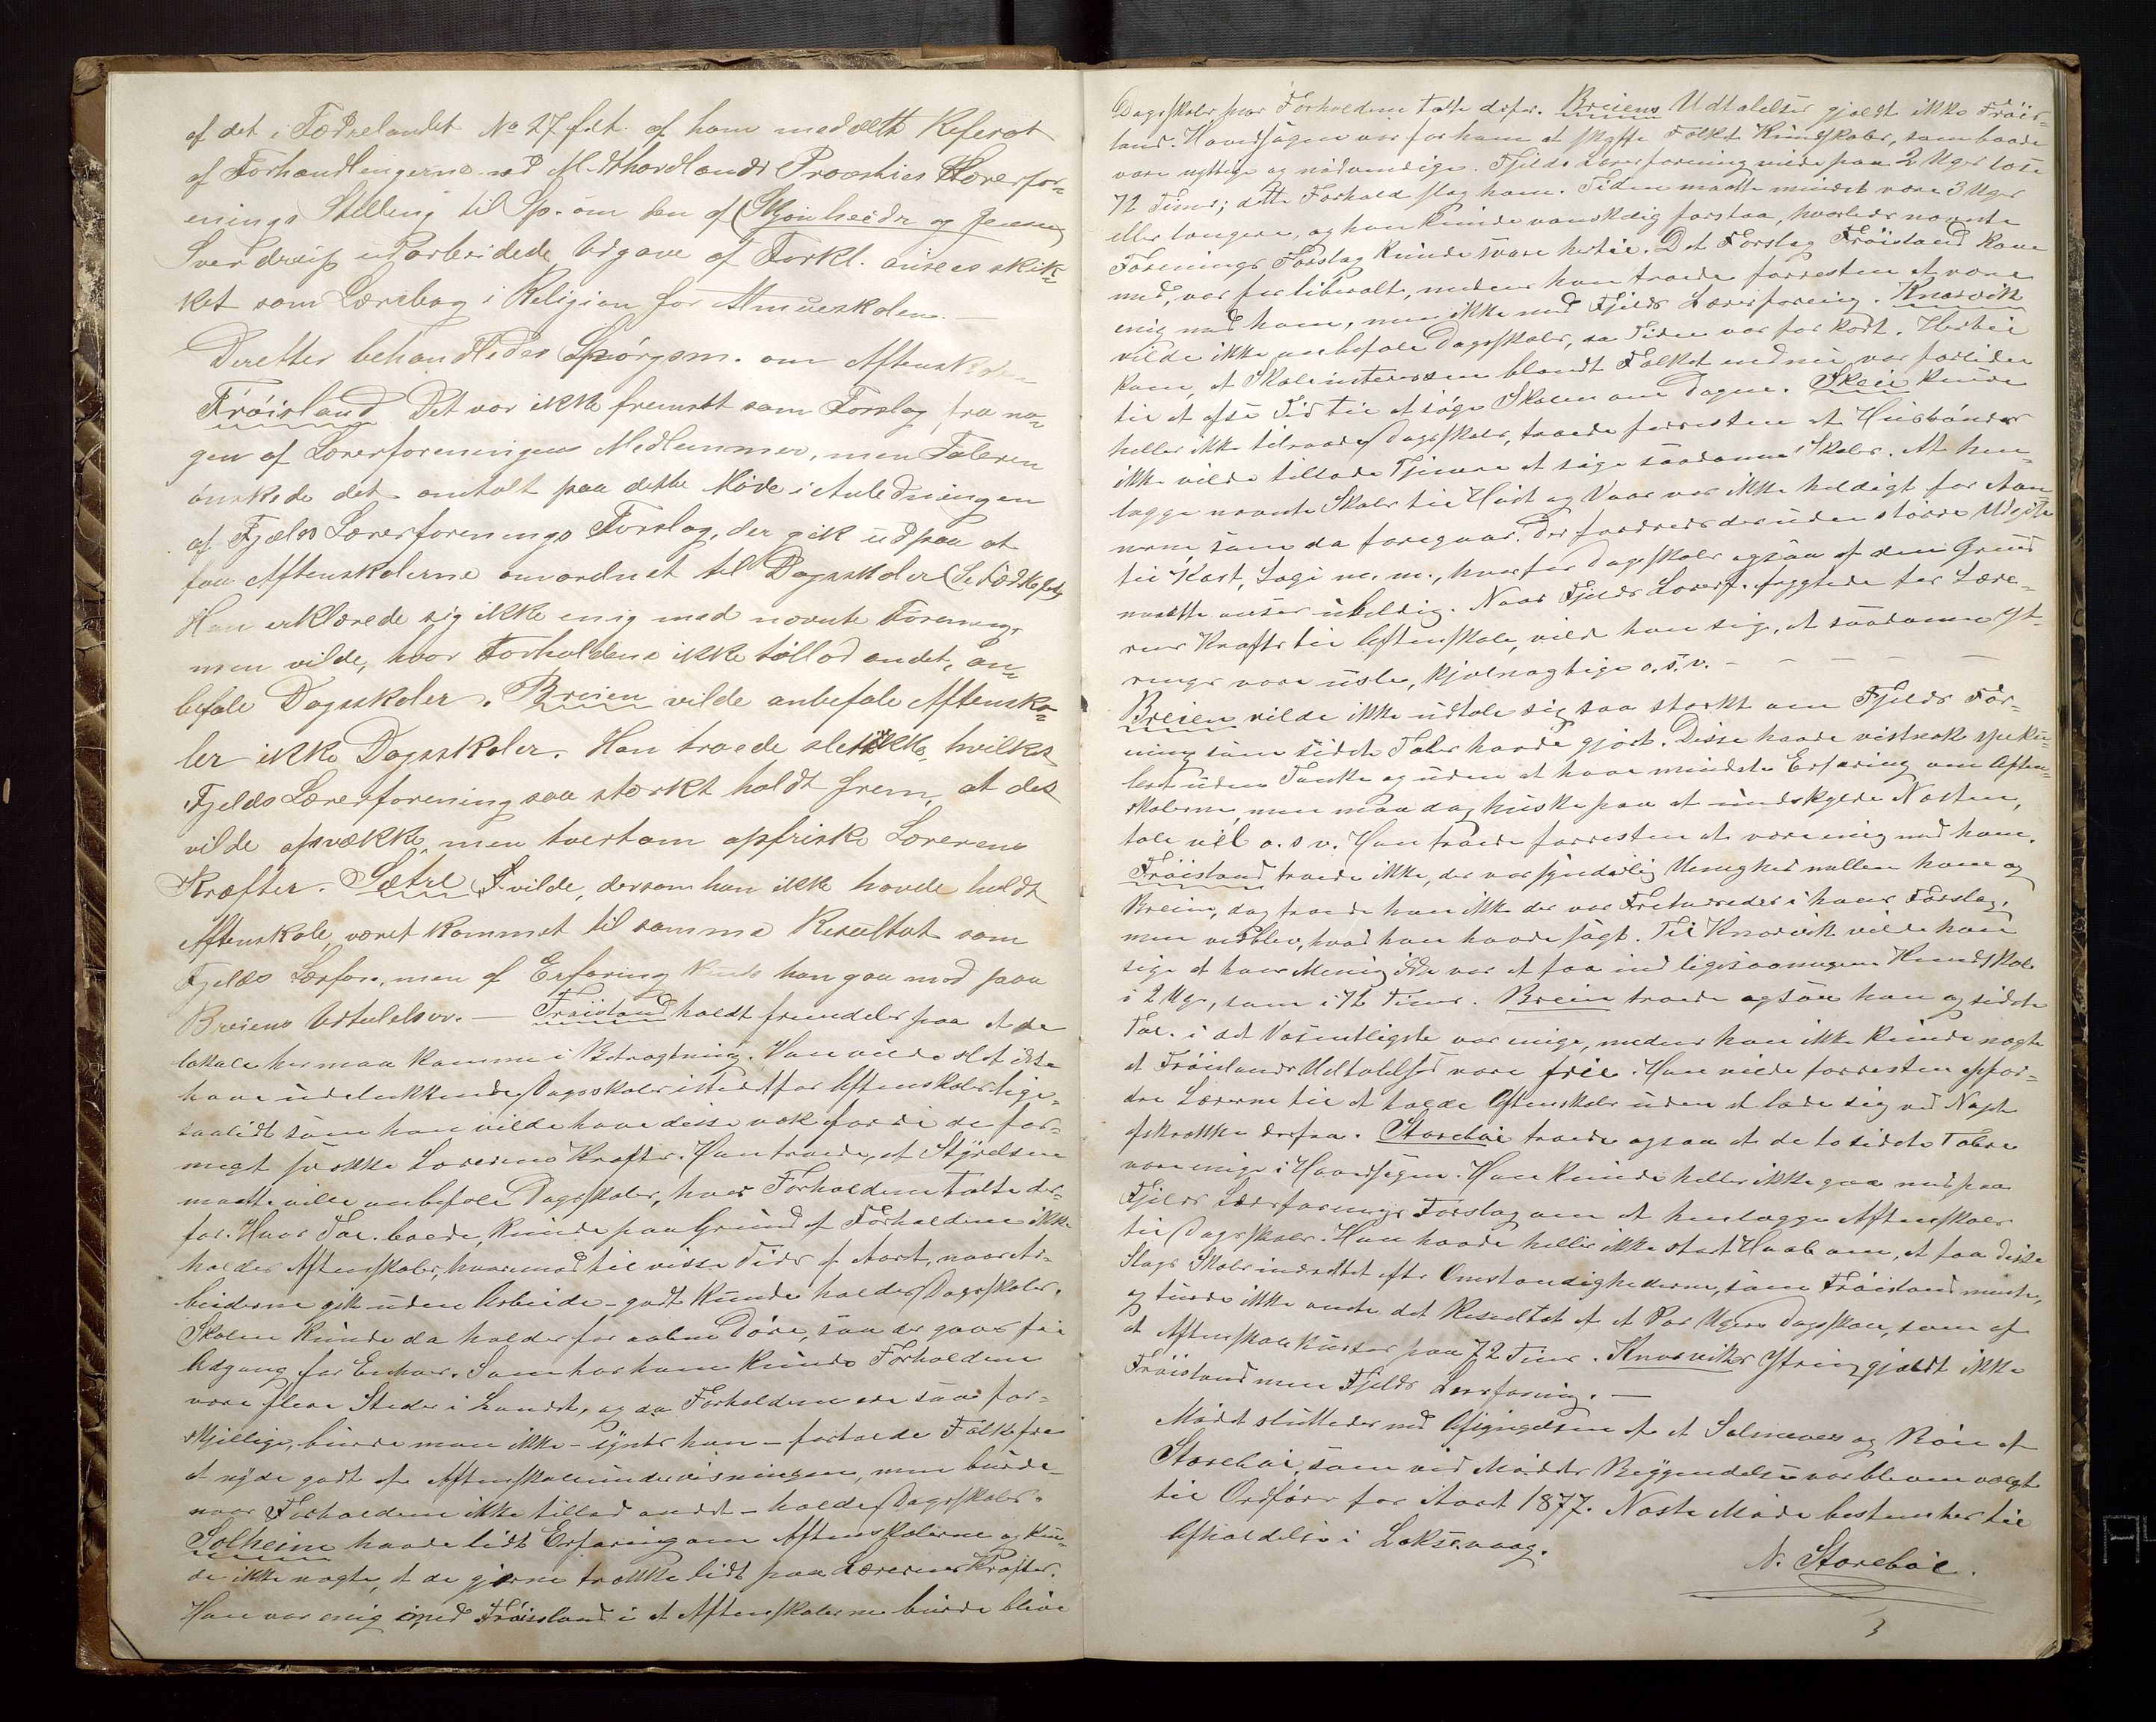 af det i Fædrelandet No 27 f.å. af ham meddelte Referat
af Forhandlingerne ved M. Hhordlands Provsties Lærerfor-
enings Stilling til Sp. om den af (Skjønheidr og Jensen)
Sverdrup udarbeidede Udgave af Forkl. ansees skik-
ket som Lærebog i Religion for Almueskolen. —
Derefter behandledes Spörgsm. om Aftenskolen
Fröisland Det var ikke fremsat som Forslag fra no-
gen af Lærerforeningens Medlemmer, men Taleren
ønskede det omtalt paa dette Möde i Anledningen
af Fjelds Lærerforenings Forslag, der gik ud paa at
faa Aftenskolerne omordnet til Dagsskoler (Se
Han erklærede sig ikke enig med nævnte Forening,
men vilde, hvor Forholdene ikke tillod andet, an-
befale Dagsskoler. Breien vilde anbefale Aftensko-
ler ikke Dagsskoler. Han troede slet ikke, hvilket
Fjelds Lærerforening saa stærkt holdt frem, at det
vilde afsvække, men tvertom opfriske Lærerens
Kræfter. Sætre S. vilde, dersom han ikke havde holdt
Aftenskole, været kommet til samme Resultat som
Fjelds Lærfor., men af Erfaring kunde han gaa med paa
Breiens Udtalelser. — Fröisland holdt fremdeles paa at de
lokale her maa komme i Betragtning. Han vilde slet ikke
have udelukkende Dagsskoler istedetfor Aftenskoler lige-
saalidt som han vilde have disse væk fordi de for-
meget svække Lærerens Kræfter. Han troede, at Styrelsen
maatte ville anbefale Dagsskoler, hvor Forholdene talte der-
for. Hvor Tal. boede, kunde paa Grund af Forholdene ikke
holdes Aftenskoler, hvorimod til visse Tider af Aaret, naar Ar-
beiderne gik uden Arbeide — godt kunde holdes Dagsskoler.
Skolen kunde da holdes for aabne Döre, saa der gaves fri
Adgang for Enhver. Som hos ham kunde Forholdene
være flere Steder i Landet, og da Forholdene ere saa for-
skjellige, burde man ikke — syntes han — forholde Folk fra
at nyde godt af Aftenskoleundervisningen, men burde
naar Forholdene ikke tillod andet — holde Dagsskoler.
Solheim havde lidt Erfaring om Aftenskolerne og kun-
de ikke negte, at de gjerne trække lidt paa Lærerens Kræfter.
Han var enig med Fröisland i at Aftenskolerne burde blive
Dagsskoler hvor Forholdene talte derfor. Breiens Udtalelser gjældt ikke Fröis-
land. Hovedsagen var for ham at skaffe Folket Kundskaber, som baade
vare nyttige og nødvendige. Fjelds Lærerforening vilde paa 2 Uger læse
72 Timer; dette Forhold slog ham. Tiden maatte mindst være 3 Uger
eller længere, og han kunde vanskelig forstaa, hvorledes nævnte
Forenings Forslag kunde svare hertil. Det Forslag Fröisland kom
med, var for liberalt, medens han troede forresten at være
enig med ham, men ikke med Fjelds Lærerforening. Knarvik
vilde ikke anbefale Dagsskoler, da Tiden var for kort. Hertil
kom, at Skoleinteressen blandt Folket endnu var for liden
til at ofre Tid til at söge Skolen om Dagen. Skeie kunde
heller ikke tilraade Dagsskoler, troede forresten at Husbönder
ikke vilde tillade Tjenere at söge saadanne Skoler. At hen-
lægge nævnte Skoler til Höst og Vaar var ikke heldigt for Aan-
nerne, som da foregaar. Der fordredes desuden större Udgifter
til Kost, Logi m. m., hvorfor Dagsskoler ogsaa af den Grund
maatte ansees uheldig. Naar Fjelds Lærerf. frygtede for Lære-
rens Kræfter til Aftenskole, vilde han sige, at saadanne Yt-
ringer vare usle, kjælnagtige o. s. v. — — — — —
Breien vilde ikke udtale sig saa stærkt om Fjelds For-
ening som sidste Taler havde gjort. Disse havde vistnok speku-
leret uden Tanke og uden at have mindste Erfaring om Aften-
skolerne, men maa dog huske paa at undskylde Næsten,
tale vel o. s v. Han troede forresten at være enig med ham.
Fröisland troede ikke, der var synderlig Uenighed mellem ham og
Breien, dog troede han ikke der var i hans Forslag,
men vedblev, hvad han havde sagt. Til Knarvik vilde han
sige at hans Mening ikke var at faa ind ligesaamegen Kundskab
i 2 Uger, som i 72 Timer. Breien troede ogsaa han og sidste
Tal. i det Væsentligste var enige, medens han ikke kunde negte
at Fröislands Udtalelser vare frie. Han vilde forresten opfor-
dre Lærerne til at holde Aftenskoler uden at lade sig ved Noget
afskrække derfra. Storeböe troede ogsaa at de to sidste Talere
vare enige i Hovedsagen. Han kunde heller ikke gaa med paa
Fjelds Lærerforenings Forslag om at henlægge Aftenskoler
til Dagsskoler. Han havde heller ikke stort Haab om, at faa disse
Slags Skoler indrettet efter Omstændighederne, som Fröisland mente,
og turde ikke vente det Resultat af et Par Ugers Dagsskole, som af
et Aftenskolekursus paa 72 Timer. Knarviks Ytring gjældt ikke
Fröisland men Fjelds Lærerforening. —
Mödet sluttedes med Afsyngelsen af et Salmevers og Bön af
Storeböe, som ved Mödets Begyndelse var bleven valgt
til Ordförer for Aaret 1877. Næste Möde bestemtes til
Afholdelse i Laksevaag.
N. Storeböe.
3